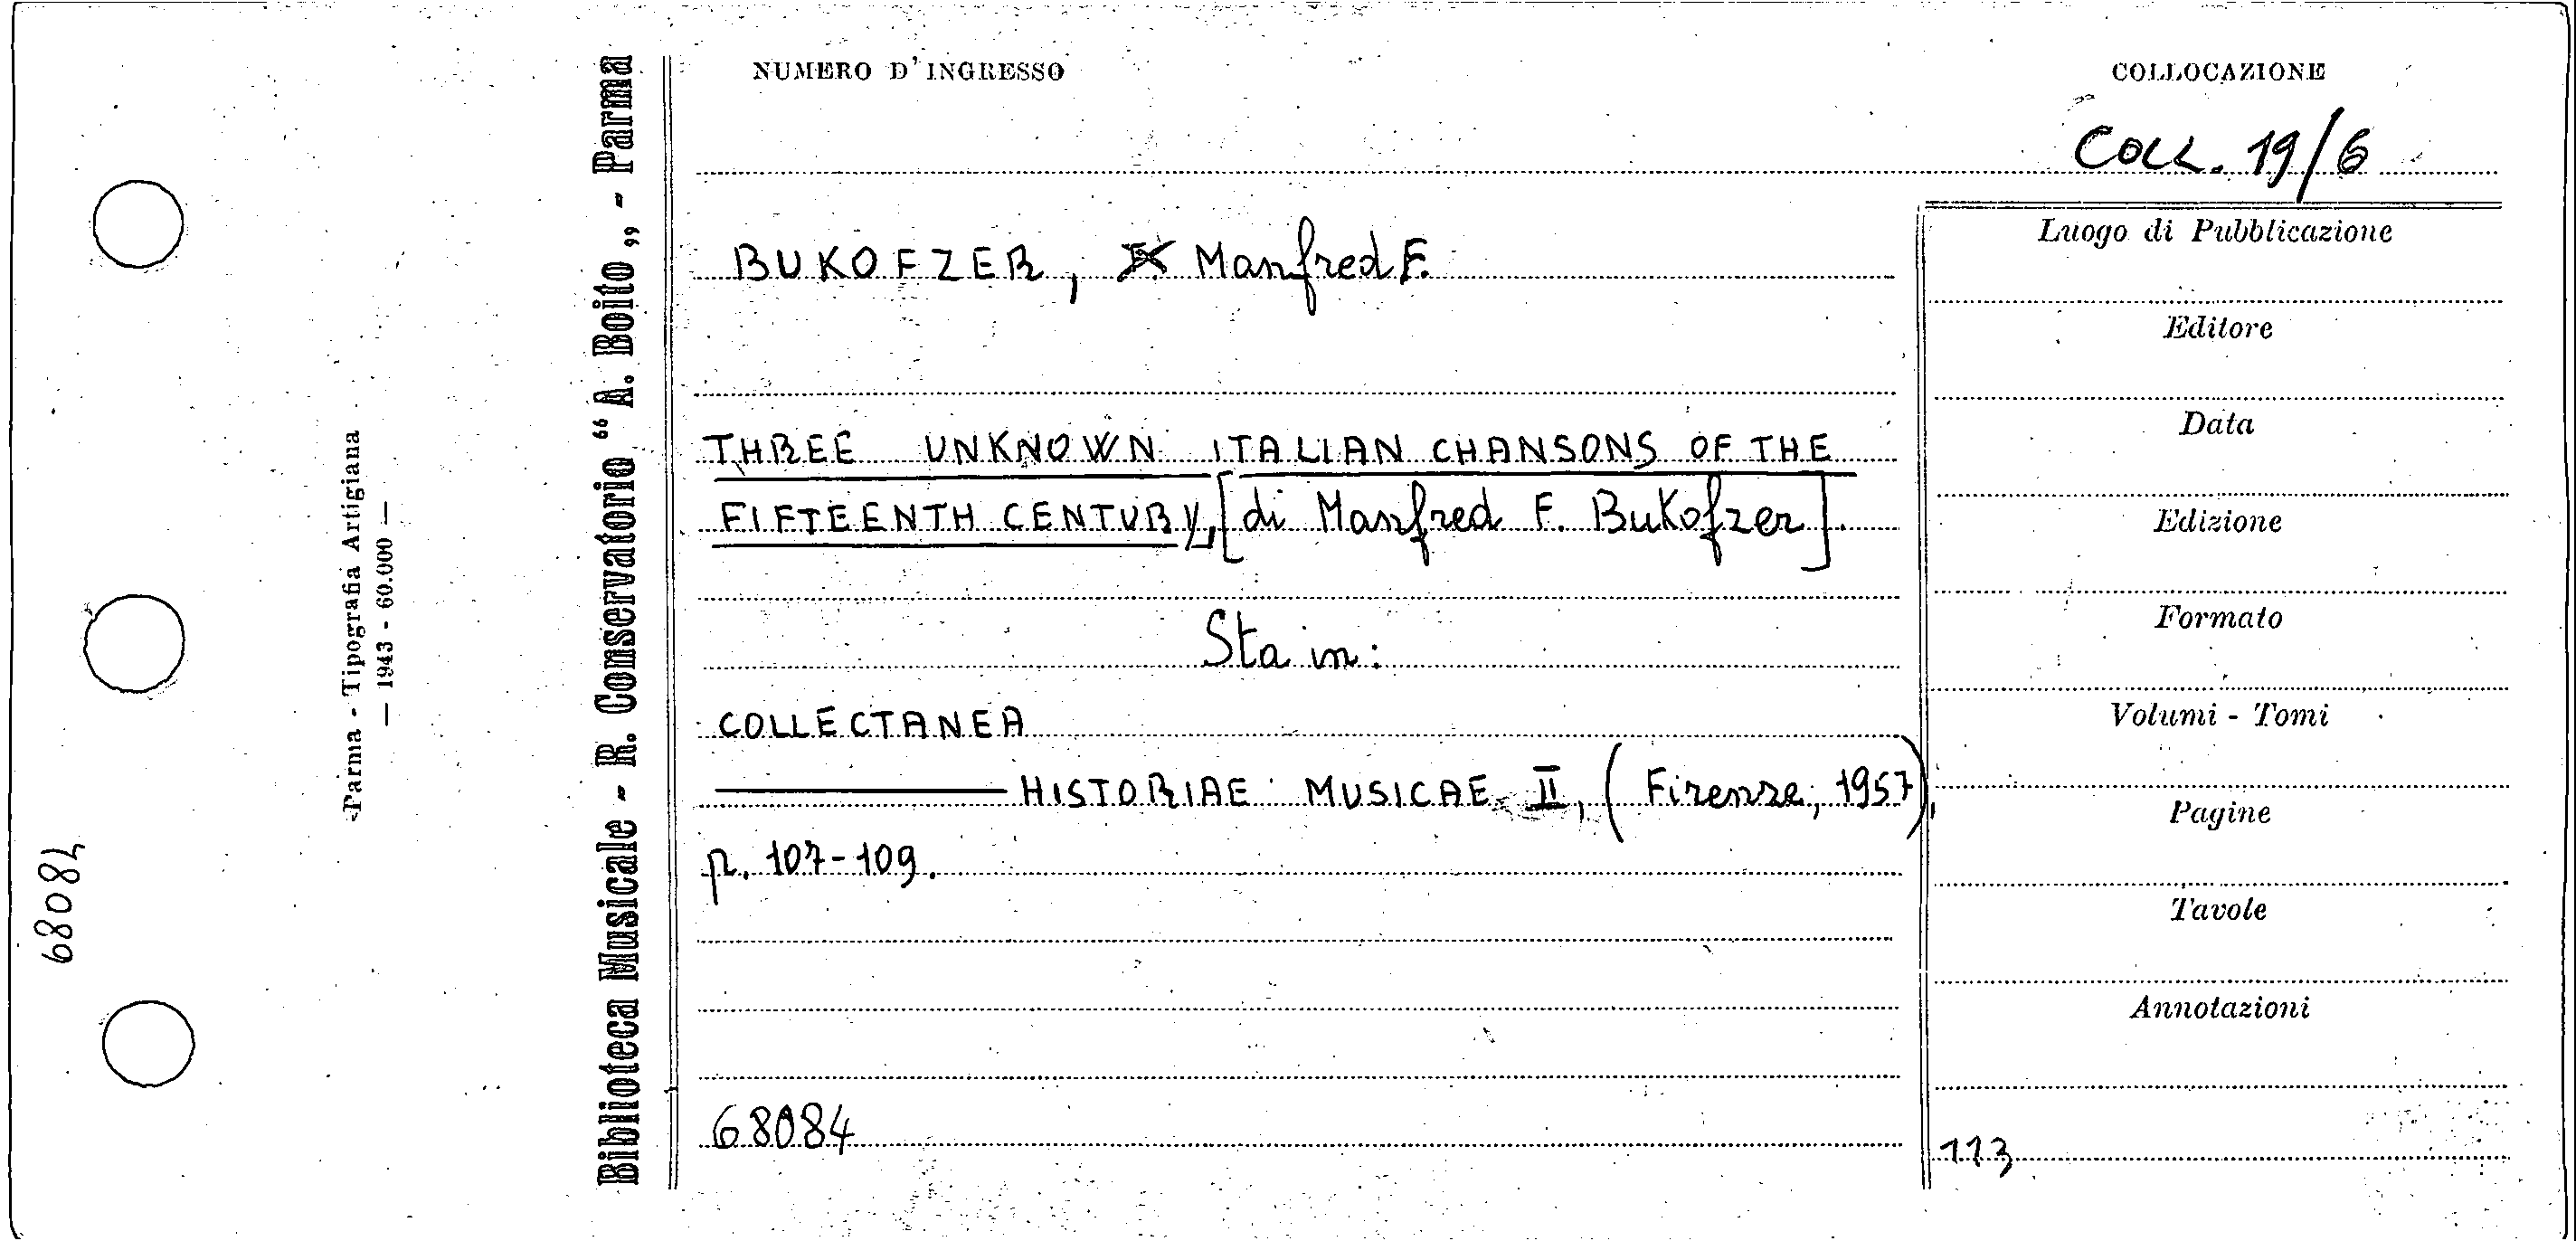 NUMERO D'INGRESSO
COLLOCAZIONE
COLL. 19/6
BUKOFZER, Manfred F.
THREE UNKNOWN ITALIAN CHANSONS OF THE
FIFTEENTH CENTURY, [di Manfred F. Bukofzer].
Sta in:
COLLECTANEA
HISTORIAE MUSICAE II, (Firenze, 1957),
p. 107-109.
68084
Luogo di Pubblicazione
Editore
Data
Edizione
Formato
Volumi - Tomi
Pagine
Tavole
Annotazioni
113
Biblioteca Musicale - R. Conservatorio “ A. Boito „ - Parma
Parma - Tipografia Artigiana
— 1943 - 60.000 —
68084